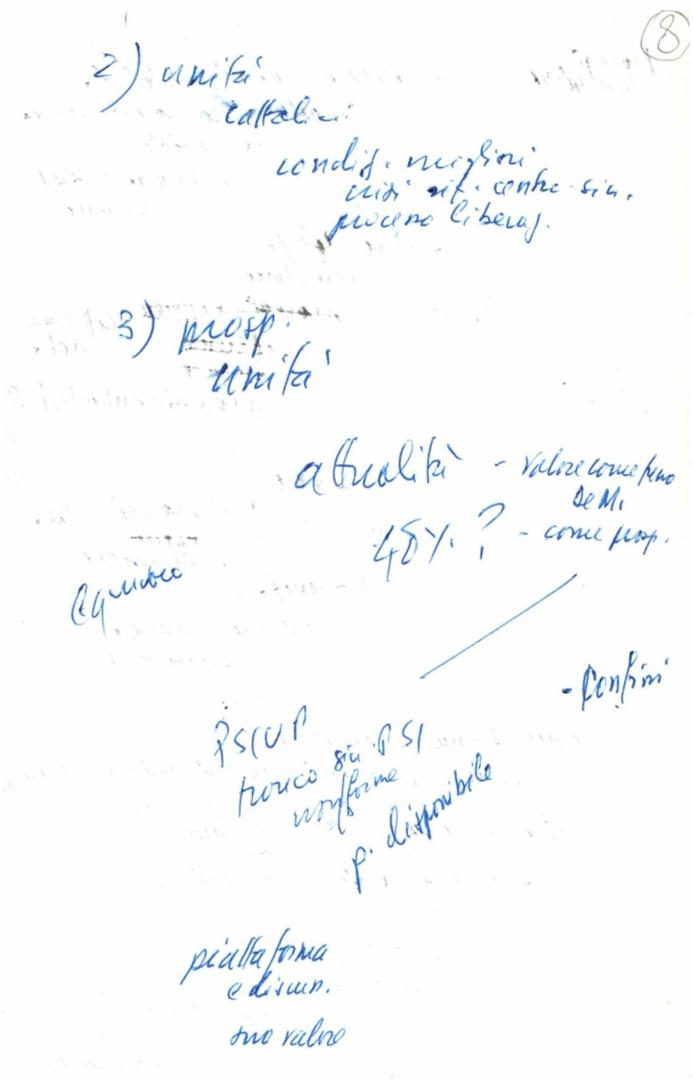 8
2) unità
cattolici
condiz. migliori
crisi sit. centro-sin.
processo liberaz.
3) prosp.
unità
attualità - valore come freno
De M.
48%. ? - come prosp.
Equivoco
- Confini
PSIUP
tronco sin. PSI
non forme
p. disponibile
piattaforma
e discum.
suo valore